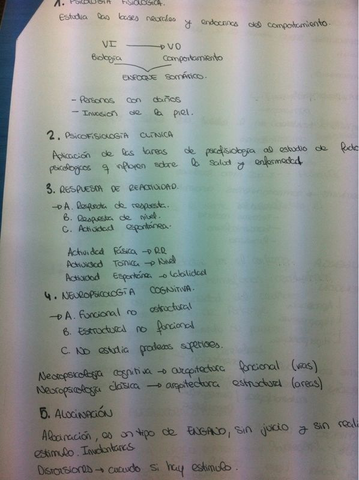 1. PSICOLOGÍA FISIOLÓGICA.
Estudia las bases neurales y endocrinas del comportamiento.
VI → VD
Biología Comportamiento
ENFOQUE SOMÁTICO.
- Personas con daños
- Invasion de la piel.
2. PSICOFISIOLOGÍA CLÍNICA
Aplicación de las tareas de psicofisiología al estudio de facto
psicologicos q influyen sobre la salud y enfermedad.
3. RESPUESTA DE REACTIVIDAD
→ A. Respuesta de respuesta.
B. Respuesta de nivel.
C. Actividad espontánea.
Actividad Fásica → RR
Actividad Tonica → Nivel
Actividad Espontánea → Labilidad
4. NEUROPSICOLOGÍA COGNITIVA.
→ A. Funcional no estructural
B. Estructural no funcional
C. No estudia procesos superiores.
Neuropsicología cognitiva → arquitectura funcional (vías)
Neuropsicología clásica → arquitectura estructural (areas)
5. ALUCINACIÓN
Alucinación, es un tipo de ENGAÑO, sin juicio y sin real
estímulo. Involuntarias
DISTORSIONES → cuando si hay estímulo.